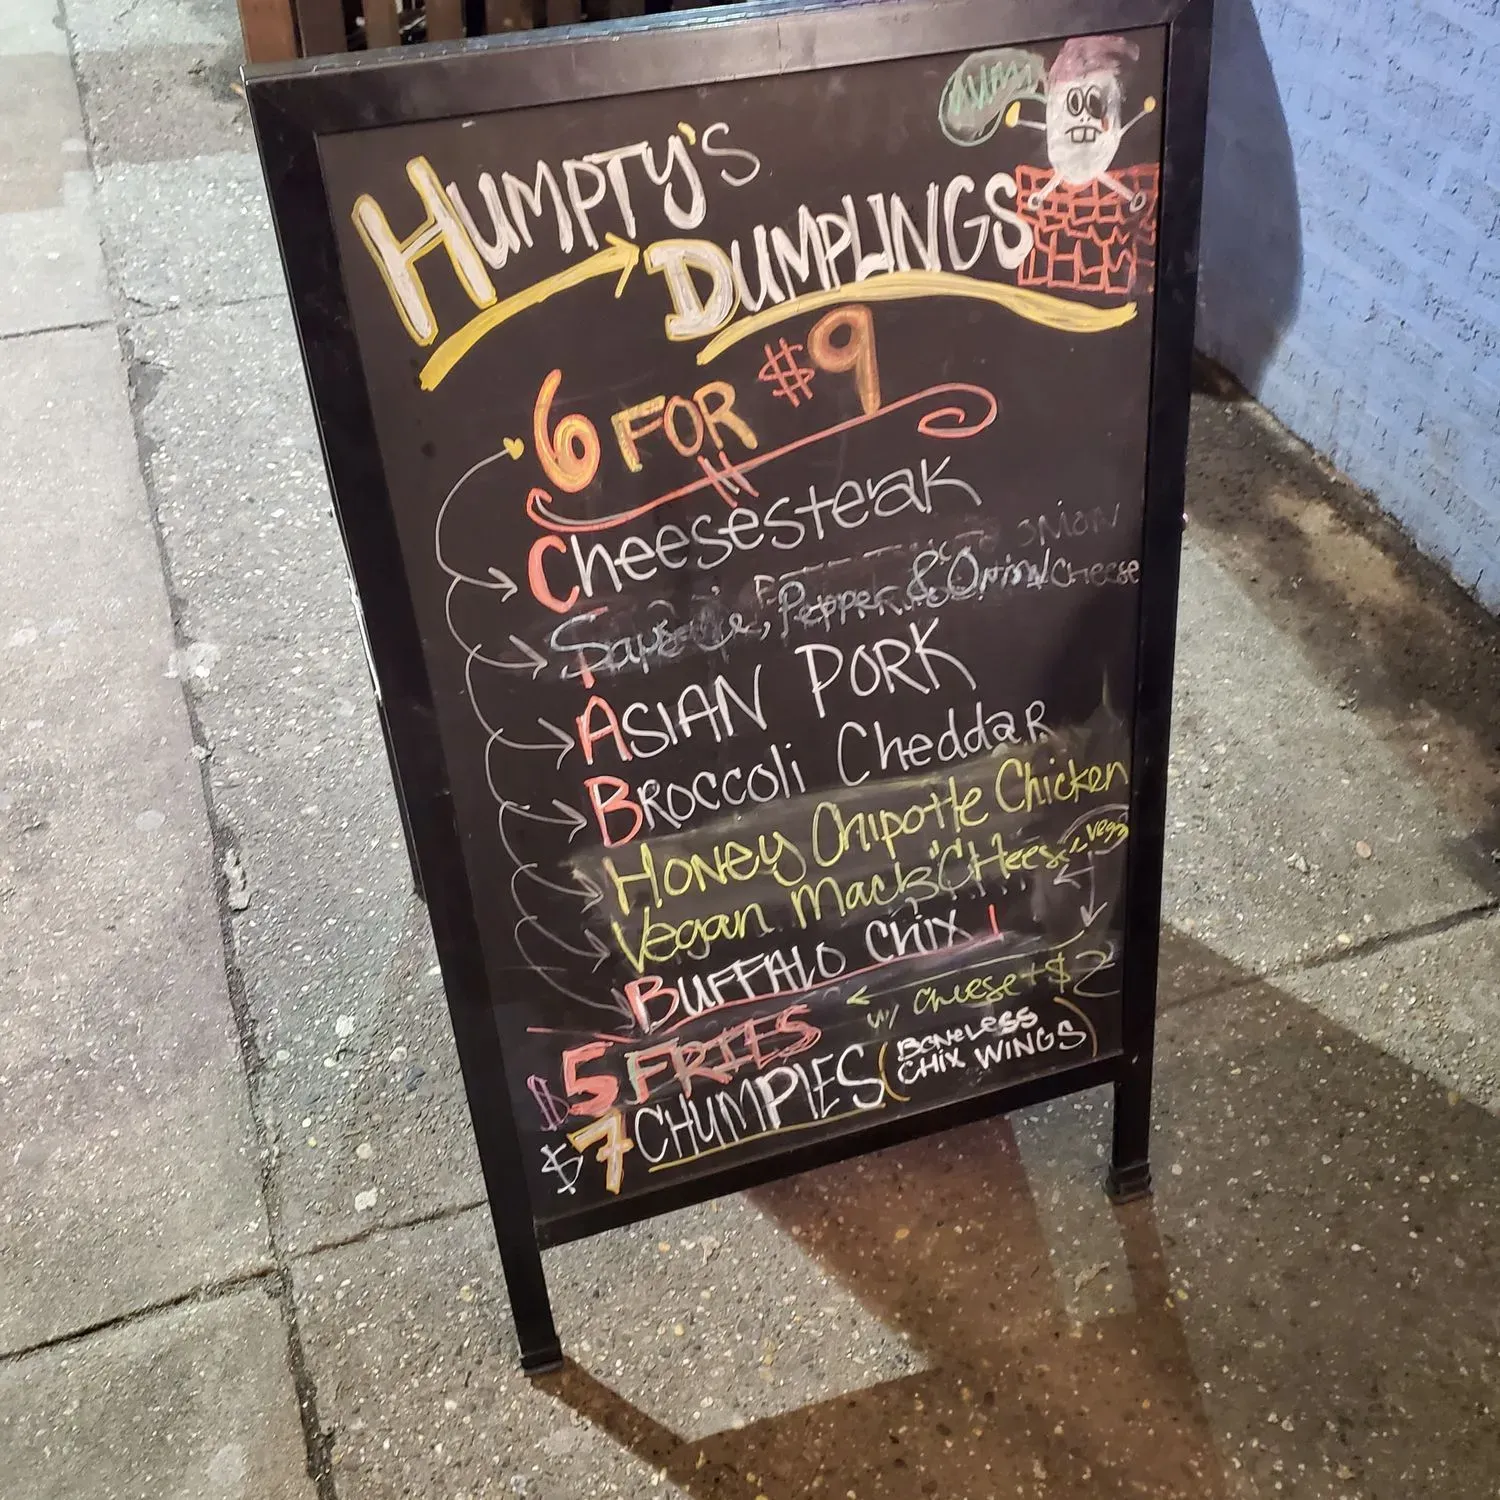 HUMPTY'S
DUMPLINGS
6 FOR $9
Cheesesteak
onion
Sausage, Pepper & Onion/Cheese
ASIAN PORK
BROCCOLI CheddaR
HoNey Chipotle Chicken
Vegan Mac & CHeese
BUFFALO CHIX
w/ cheese + $2
$5 FRIES
$7 CHUMPIES (BONELESS
CHIX WINGS)